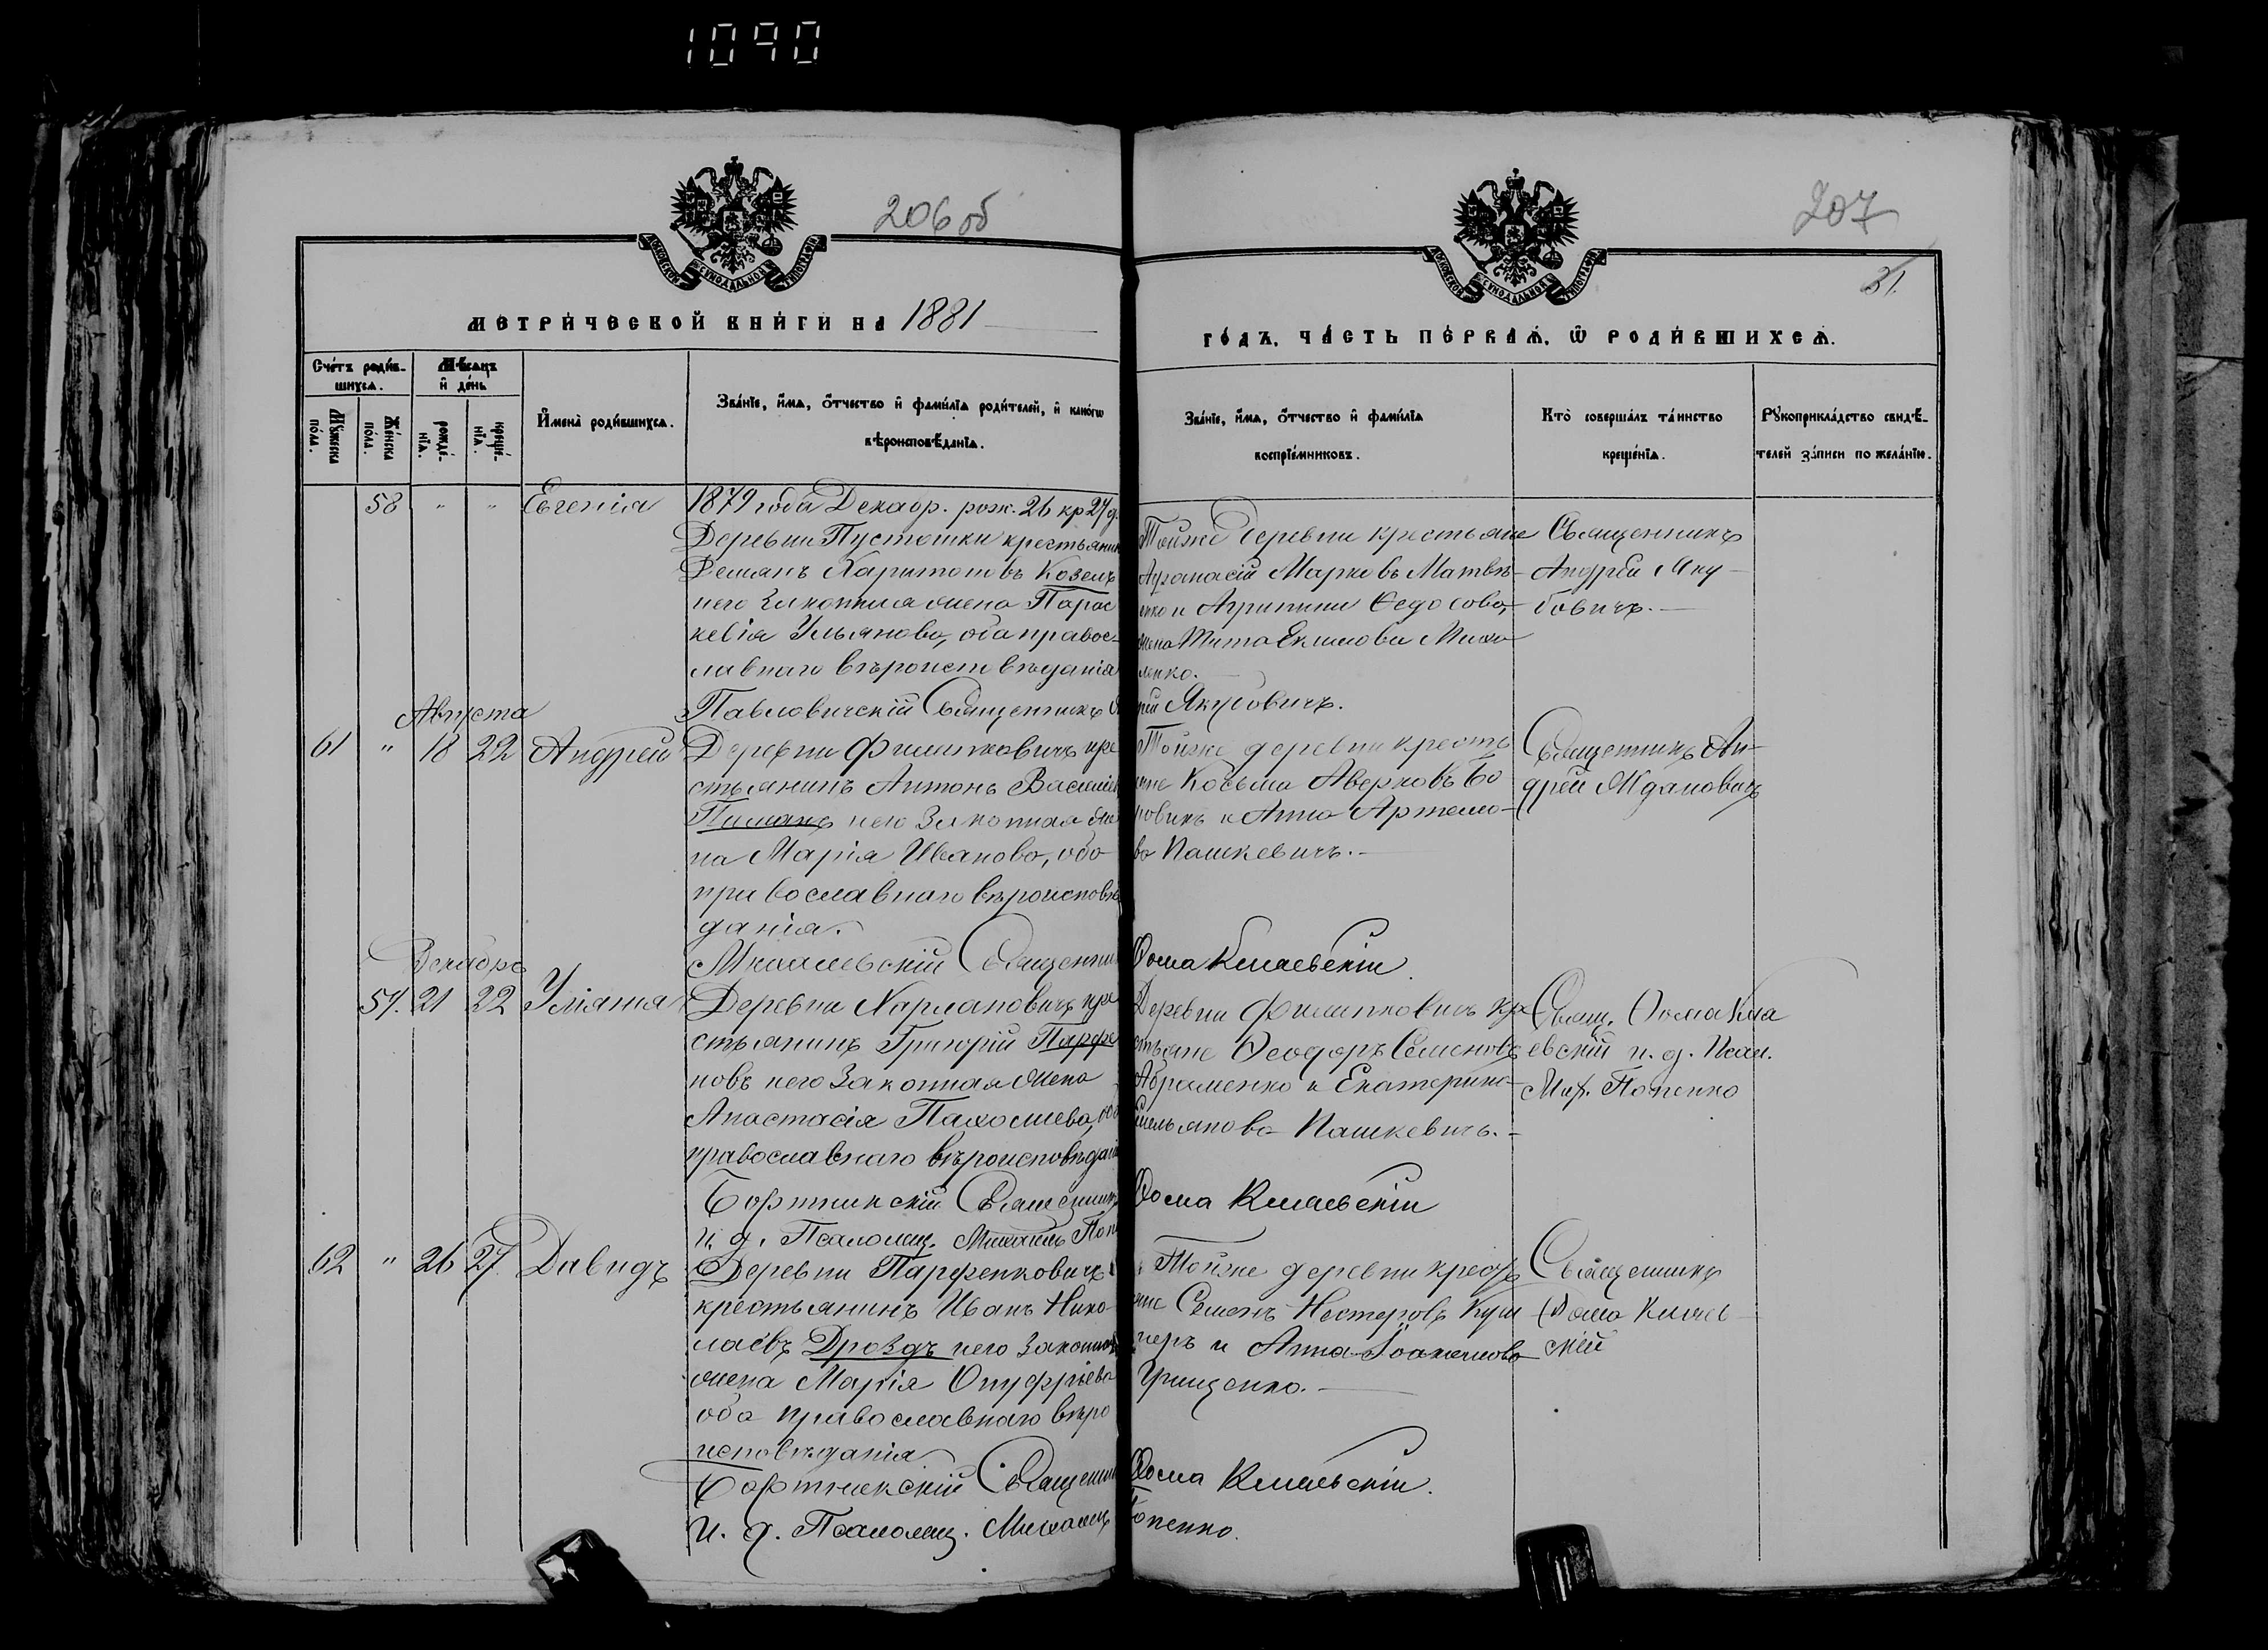 1090
206 об
207
31.
МОСКОВСКОЙ СѴНОДАЛЬНОЙ ТИПОГРАФІИ
МОСКОВСКОЙ СѴНОДАЛЬНОЙ ТИПОГРАФІИ
МЕТРИ́ЧЕСКОЙ КНИ́ГИ НА 1881
ГО́ДЪ. ЧА́СТЬ ПЕ́РВАѦ. Ѿ РОДИ́ВШИХСѦ.
Сче́тъ роди́в-
шихсѧ.
Мѣ́сѧцъ
и҆ де́нь
Мꙋ́жеска
по́ла.
Же́нска
по́ла.
рожде́-
нїѧ.
креще́-
нїѧ.
И҆мена̀ роди́вшихсѧ.
Зва́нїе, и҆́мѧ, ѻ҆́тчество и҆ фами́лїѧ роди́телей, и҆ како́гѡ
вѣроисповѣ́данїѧ.
Зва́нїе, и҆́мѧ, ѻ҆́тчество и҆ фами́лїѧ
воспрїе́мниковъ.
Кто̀ соверша́лъ та́инство
креще́нїѧ.
Рꙋкоприкла́дство свидѣ́-
телей за́писи по жела́нїю.
58 " " Евгенія
1879 года Декабр. рож. 26 кр 27 д.
Деревни Пустошки крестьянин
Демянъ Харитоновъ Козелъ
и его законная жена Парас
кевія Ульянова, оба правос-
лавнаго вѣроисповѣданія
Павловичскій Священникъ
Тойже деревни крестьяне
Афанасій Марковъ Матвѣ-
енко и Агрипина Ѳедосова,
жена Тита Екимова Миха
ленко.
рей Якубовичъ.
Священникъ
Андрей Яку-
бовичъ.
Августа
61 " 18 22 Андрей
Деревни Филипковичъ кре
стьянинъ Антонъ Василіев
и его законная же
на Марія Иванова, оба
православнаго вѣроисповѣ
данія.
Священник
Тойже деревни кресть
яне Косьма Аверковъ Бо
ровикъ и Анна Артемо-
ва Пашкевичъ.
Ѳома Кмаевскій
Священникъ Ан-
дрей
Декабря
59. 21 22 Уліяна
Деревни Харлановичъ кре
стьянинъ Григорій Парфе
новъ и его законная жена
Анастасія Пахомиева, оба
православнаго вѣроисповѣдані
Бортникскій Священникъ
и. д. Псаломщ. Михаилъ Поп
Деревни Филипковичъ кре
стьяне Ѳеодоръ Семеновъ
Абраменко и Екатерина
Емельянова Пашкевичъ.
Ѳома Кмаевскій
Свящ. Ѳома Кма
евскій и. д. Псал.
Мих. Попенко
62 " 26 27. Давидъ
Деревни Парфенковичъ
крестьянинъ Иванъ Нико-
лаевъ Дроздъ и его законная
жена Марія Онуфріева
оба православнаго вѣро
исповѣданія
Бортникскій Священник
и. д. Псаломщ. Михаилъ
Тойже деревни кресть
яне Семенъ Нестеровъ Куш
неръ и Анна Іоакимова
Грищенко.
Ѳома Кмаевскій.
Попенко.
Священникъ
Ѳома Кмаев-
скій